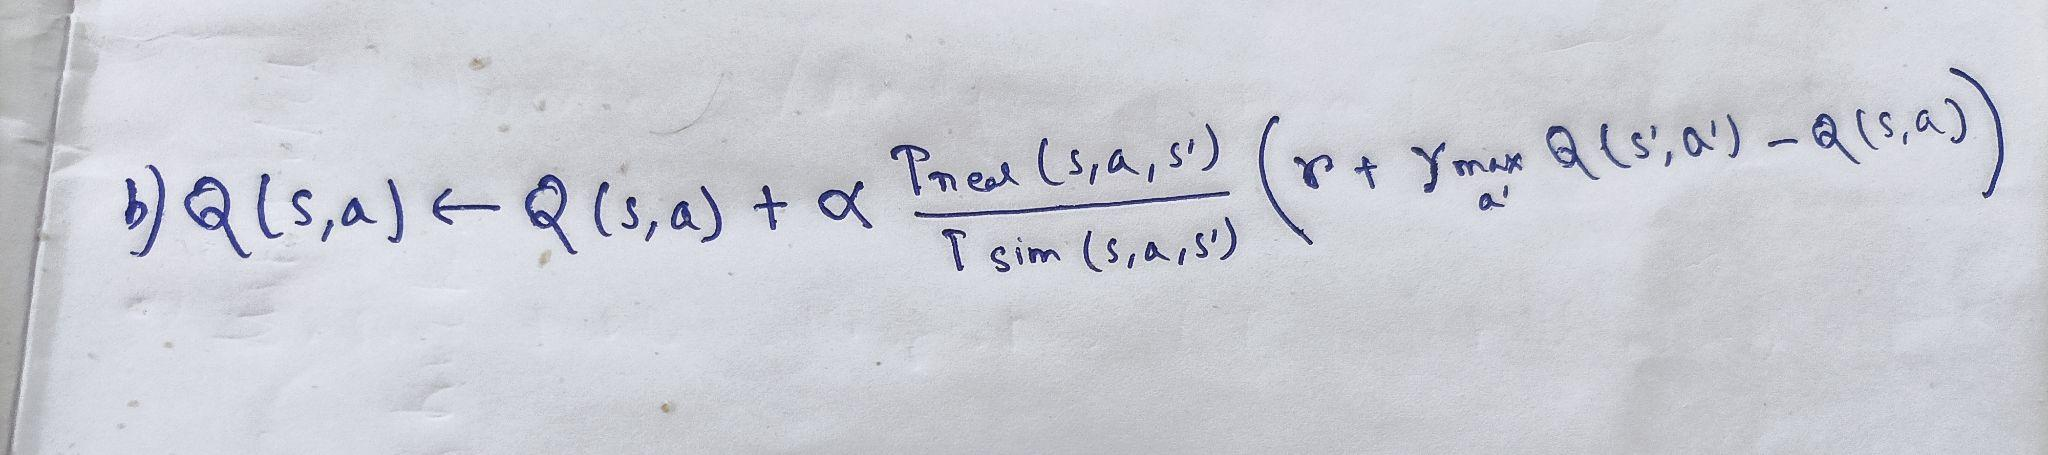 b) Q(s,a) ← Q(s,a) + α Treal (s,a,s') / T sim (s,a,s') (r + γ max a' Q(s',a') - Q(s,a))